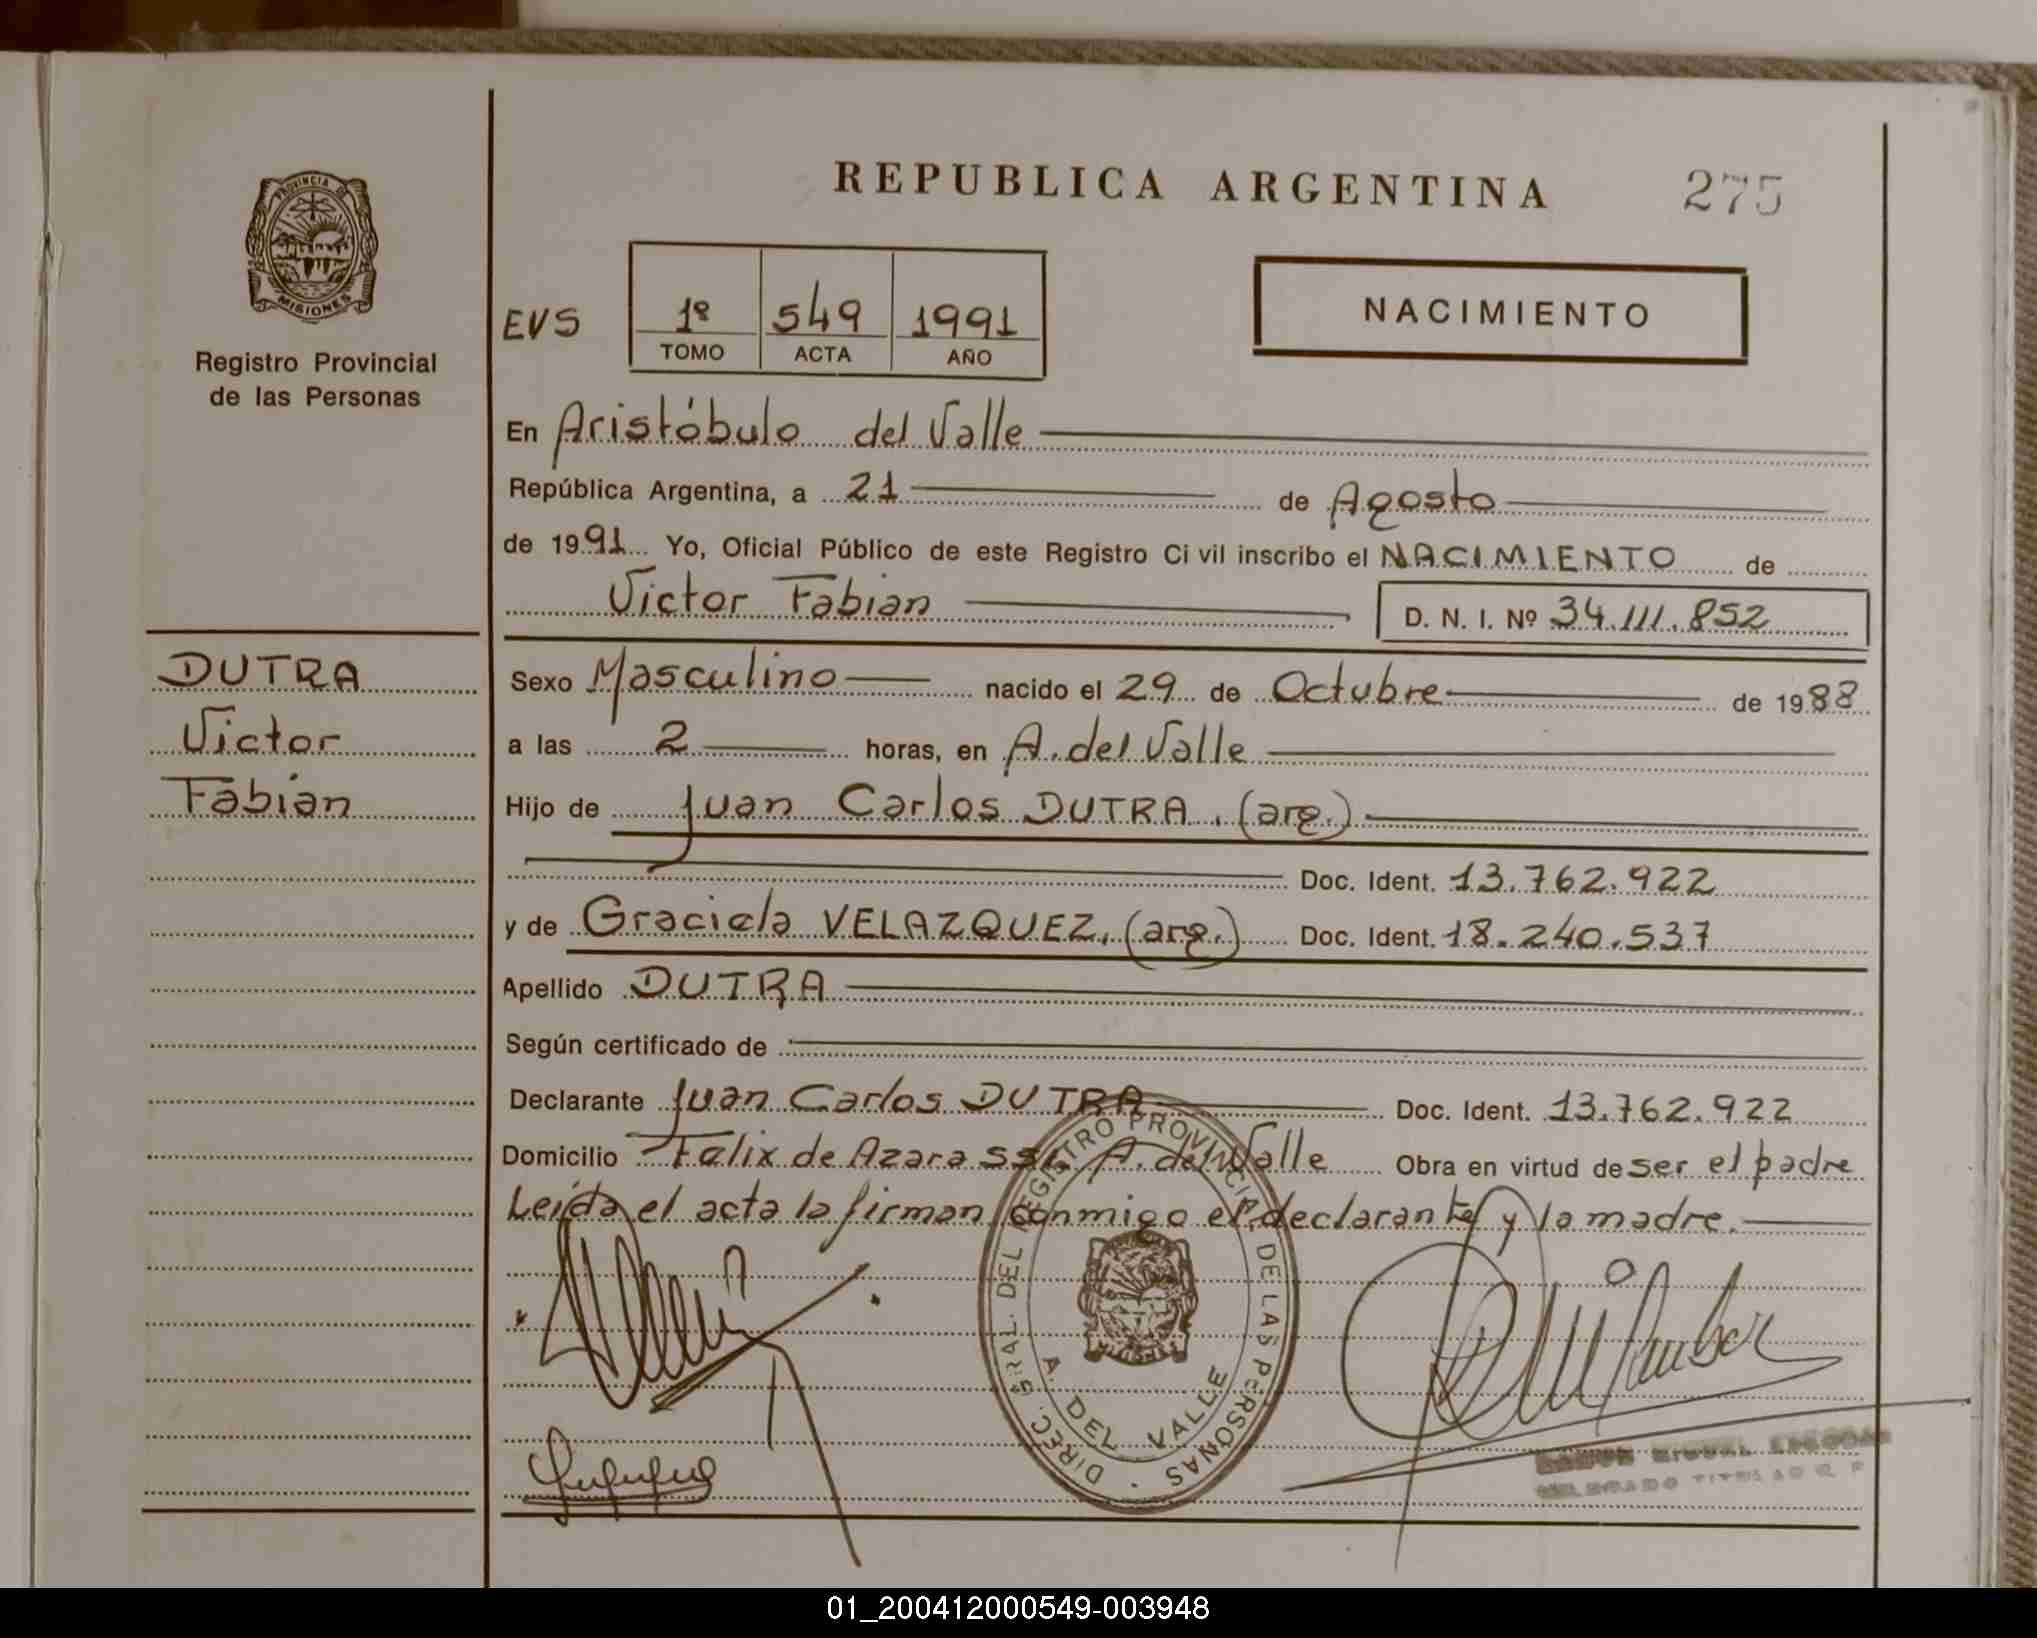 REPUBLICA ARGENTINA
275
PROVINCIA DE
MISIONES
Registro Provincial
de las Personas
EVS
1º 549 1991
TOMO ACTA AÑO
NACIMIENTO
En Aristóbulo del Valle
República Argentina, a 21 de Agosto
de 1991 Yo, Oficial Público de este Registro Ci vil inscribo el NACIMIENTO de
Victor Fabian D. N. I. Nº 34.111.852
DUTRA
Victor
Fabian
Sexo Masculino nacido el 29 de Octubre de 1988
a las 2 horas, en A. del Valle
Hijo de Juan Carlos DUTRA. (arg.)
Doc. Ident. 13.762.922
y de Graciela VELAZQUEZ, (arg.) Doc. Ident. 18.240.537
Apellido DUTRA
Según certificado de
Declarante Juan Carlos DUTRA Doc. Ident. 13.762.922
Domicilio Felix de Azara A. del Valle Obra en virtud de ser el padre
Leída el acta la firman conmigo el declarante y la madre.
DIREC. GRAL. DEL REGISTRO PROVINCIAL DE LAS PERSONAS
A. DEL VALLE
MIGUEL
TITULAR
01_200412000549-003948